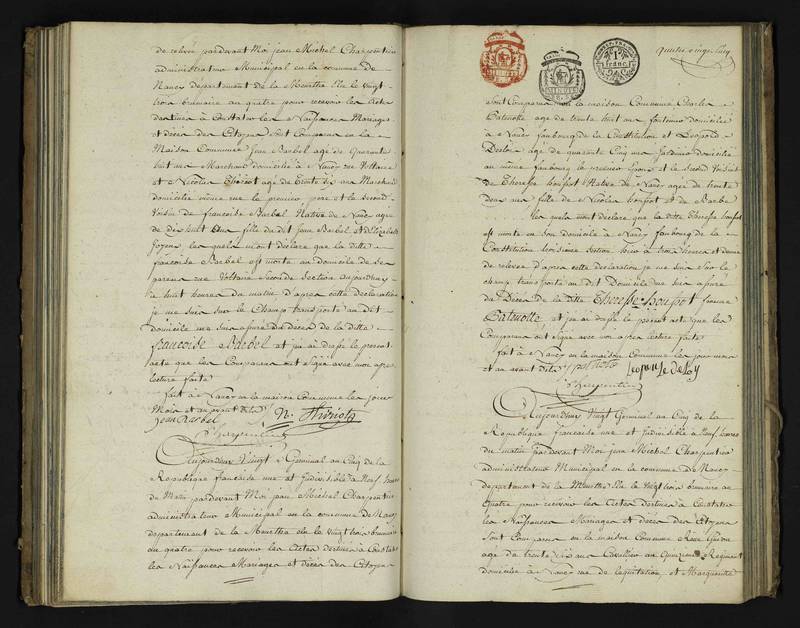 de relevé pardevant Moi jean Michel Charpentier
administrateur Municipal en la commune de
Nancy departement de la Meurthe Elu le vingt
trois brumaire an quatre pour recevoir les Actes
destinés à Constater les Naissances Mariages
et décès des Citoyens sont Comparus en la
Maison Commune jean Barbel agé de quarante
huit ans Marchand domicilié à Nancy rue Voltaire
et Nicolas Thiriot agé de trente six ans Marchand
domicilié même rue le premier pere et le second
Voisin de françoise Barbel Native de Nancy agée
de dix huit ans fille du dit jean Barbel et d'Elizabeth
les quels m'ont déclaré que la ditte
françoise Barbel est morte au domicile de ses
parens rue Voltaire seconde section aujourdhuy
à huit heures du matin d'apres cette declaration
je me suis sur le Champ transporté au dit
domicile me suis assuré du décès de la ditte
françoise Barbel et j'ai dressé le present
acte que les Comparans ont signé avec moi apres
lecture faite
fait à Nancy en la maison Commune les jour
Mois et an avant dits
jean Barbel N. Thiriot
Charpentier
Aujourdhuy Vingt Germinal an Cinq de la
Republique francaise une et Indivisible à Neuf heures
du Matin pardevant Moi jean Michel Charpentier
administrateur Municipal en la commune de Nancy
departement de la Meurthe elu le vingt trois brumaire
an quatre pour recevoir les Actes destinés à Constater
les Naissances Mariages et décès des Citoyens
quatre vingt cinq
franc
sont Comparus en la maison Commune Charles
Patenotte agé de trente huit ans domicilié
à Nancy faubourg de la Constitution et Leopold
agé de quarante Cinq ans Jardinier domicilié
au même faubourg le premier Epoux et le second Voisin
de Therese houpot Native de Nancy agée de trente
deux ans fille de Nicolas houpot et de Barbe
les quels m'ont declaré que la ditte Therese houpot
est morte en son domicile à Nancy faubourg de la
Constitution troisieme section hier à heures et demie
de relevée d'apres cette declaration je me suis sur le
champ transporté au dit Domicile me suis assuré
du Décès de la ditte Theresse houpot femme
Patenotte et j'ai dressé le present acte que les
Comparans ont signé avec moi apres lecture faite
fait à Nancy en la maison Commune les jour mois
et an avant dits
Charpentier
Aujourdhuy Vingt Germinal an Cinq de la
Republique francaise une et Indivisible à Neuf heures
du matin pardevant Moi jean Michel Charpentier
administrateur Municipal en la commune de Nancy
departement de la Meurthe Elu le vingt trois brumaire an
quatre pour recevoir les Actes destinés à Constater
les Naissances Mariages et décès des Citoyens
sont Comparus en la maison Commune René
agé de trente six ans Cavallier au Regiment
domicilié à Nancy rue de l'equitation et Marguerite